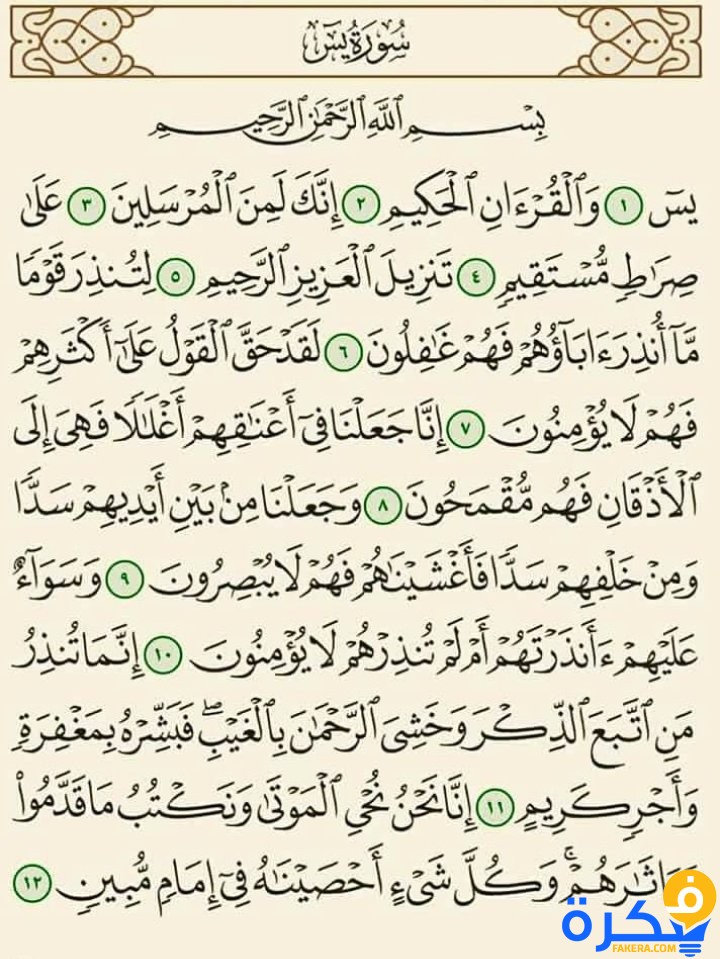 سُورَةُ يسٓ
بِسْمِ ٱللَّهِ ٱلرَّحْمَٰنِ ٱلرَّحِيمِ
يسٓ ١ وَٱلْقُرْءَانِ ٱلْحَكِيمِ ٢ إِنَّكَ لَمِنَ ٱلْمُرْسَلِينَ ٣ عَلَىٰ
صِرَٰطٍ مُّسْتَقِيمٍ ٤ تَنزِيلَ ٱلْعَزِيزِ ٱلرَّحِيمِ ٥ لِتُنذِرَ قَوْمًا
مَّآ أُنذِرَ ءَابَآؤُهُمْ فَهُمْ غَٰفِلُونَ ٦ لَقَدْ حَقَّ ٱلْقَوْلُ عَلَىٰٓ أَكْثَرِهِمْ
فَهُمْ لَا يُؤْمِنُونَ ٧ إِنَّا جَعَلْنَا فِىٓ أَعْنَٰقِهِمْ أَغْلَٰلًا فَهِىَ إِلَى
ٱلْأَذْقَانِ فَهُم مُّقْمَحُونَ ٨ وَجَعَلْنَا مِنۢ بَيْنِ أَيْدِيهِمْ سَدًّا
وَمِنْ خَلْفِهِمْ سَدًّا فَأَغْشَيْنَٰهُمْ فَهُمْ لَا يُبْصِرُونَ ٩ وَسَوَآءٌ
عَلَيْهِمْ ءَأَنذَرْتَهُمْ أَمْ لَمْ تُنذِرْهُمْ لَا يُؤْمِنُونَ ١٠ إِنَّمَا تُنذِرُ
مَنِ ٱتَّبَعَ ٱلذِّكْرَ وَخَشِىَ ٱلرَّحْمَٰنَ بِٱلْغَيْبِ ۖ فَبَشِّرْهُ بِمَغْفِرَةٍ
وَأَجْرٍ كَرِيمٍ ١١ إِنَّا نَحْنُ نُحْىِ ٱلْمَوْتَىٰ وَنَكْتُبُ مَا قَدَّمُوا۟
وَءَاثَٰرَهُمْ ۚ وَكُلَّ شَىْءٍ أَحْصَيْنَٰهُ فِىٓ إِمَامٍ مُّبِينٍ ١٢
فكرة
FAKERA.COM